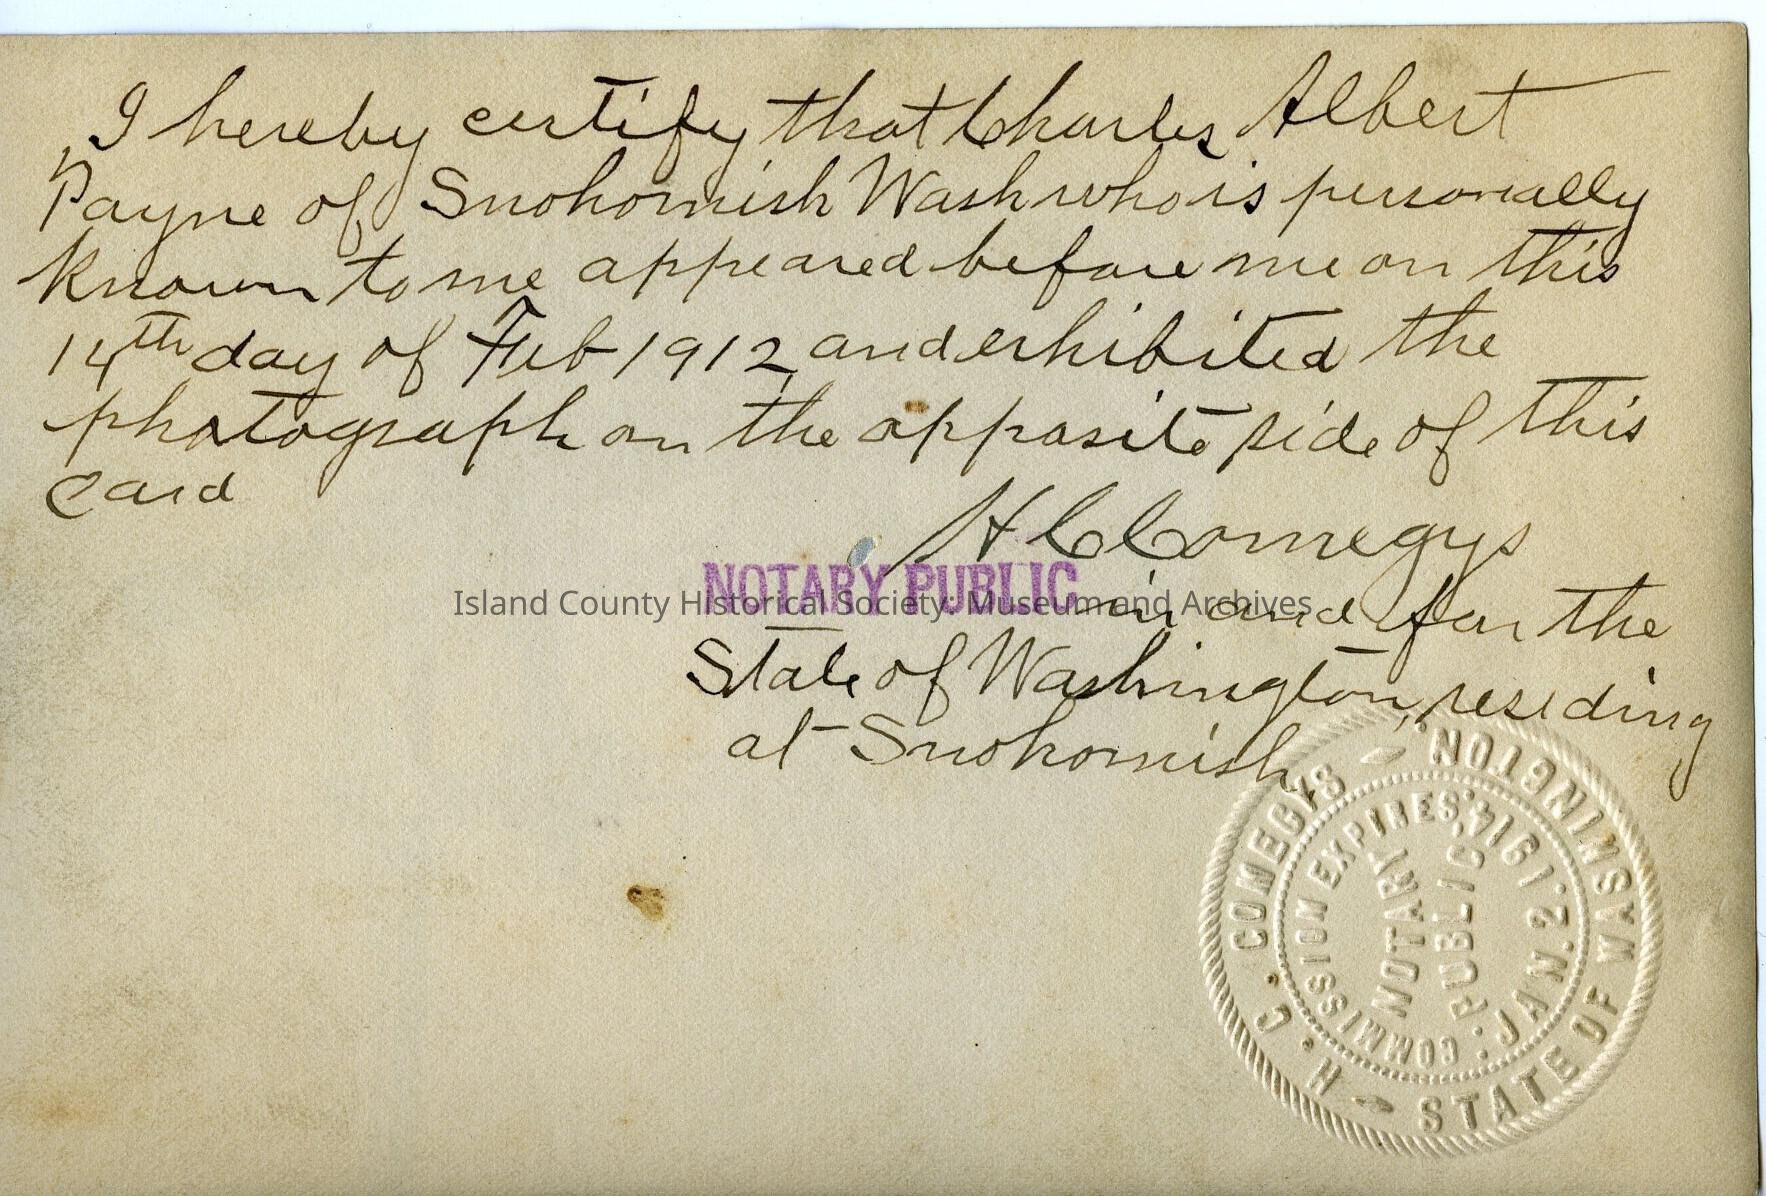 I hereby certify that Charles Albert
Payne of Snohomish Wash who is personally
known to me appeared before me on this
14th day of Feb 1912, and exhibited the
photograph on the opposite side of this
card
H C Comegys
NOTARY PUBLIC in and for the
Island County Historical Society: Museum and Archives
State of Washington, residing
at Snohomish
H. C. COMEGYS - STATE OF WASHINGTON. -
COMMISSION EXPIRES: JAN. 2. 1914.
NOTARY
PUBLIC